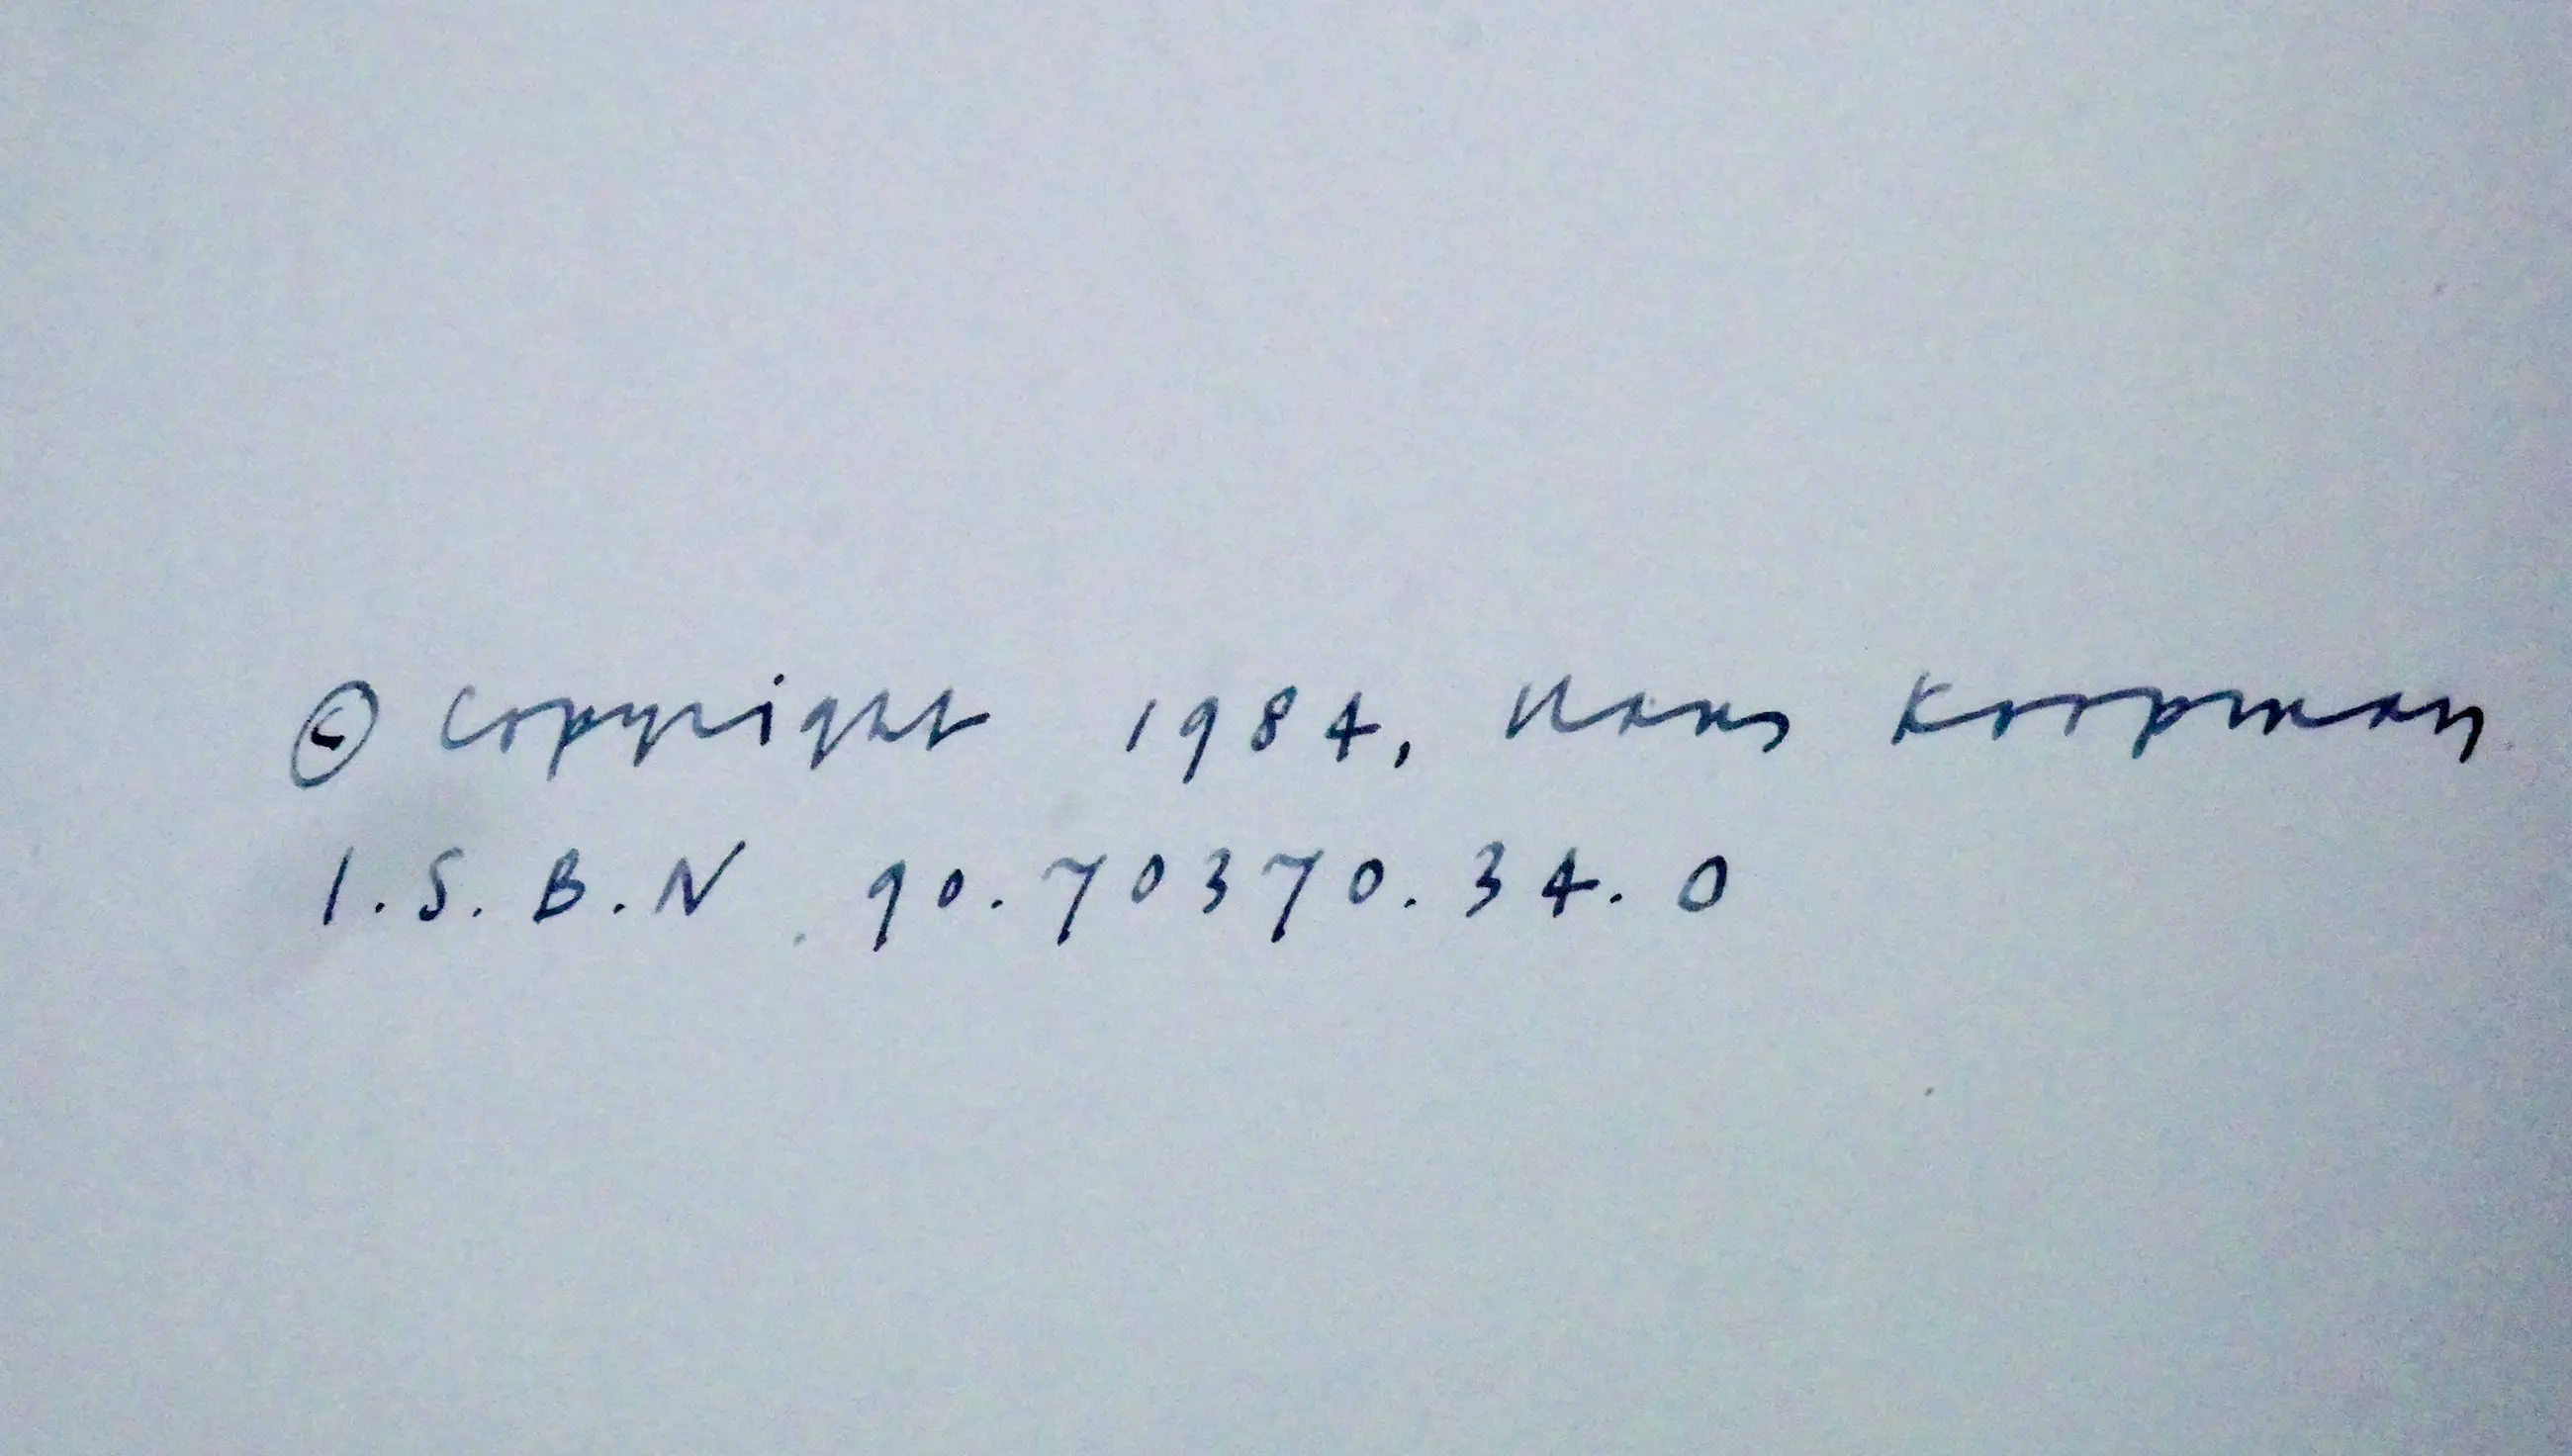 © Copyright 1984, Hans Koopman
I.S.B.N. 90.70370.34.0